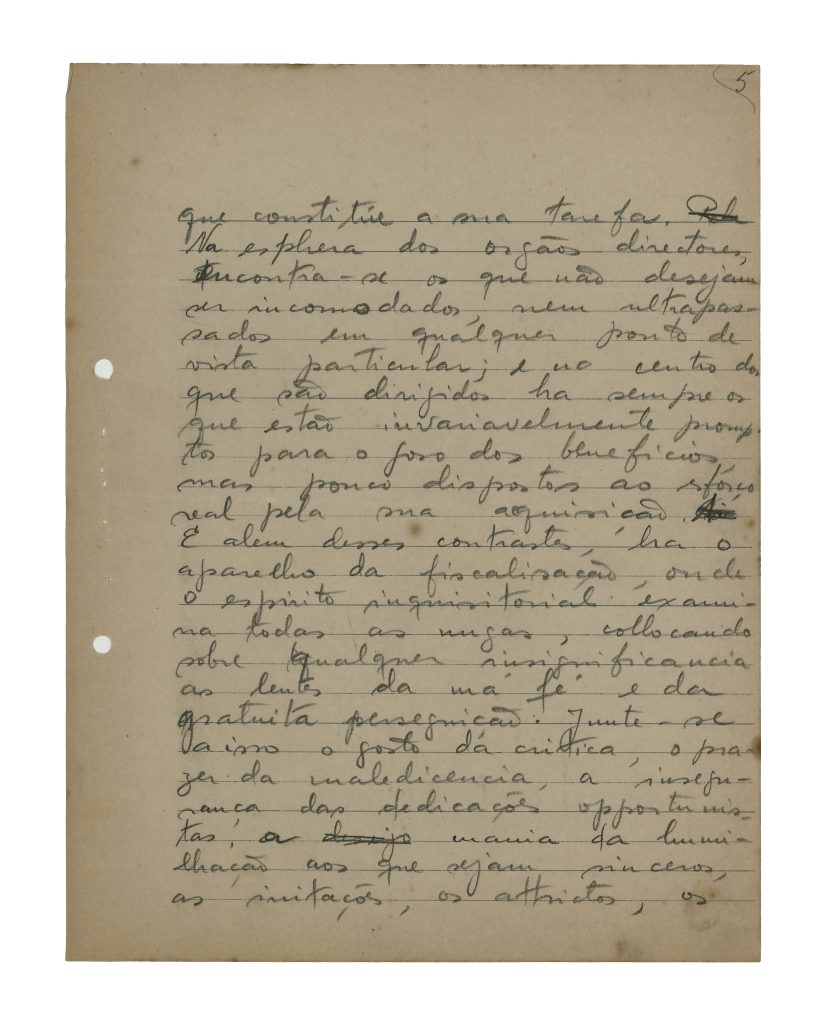 5
que constitúe a sua tarefa.
Na esphera dos orgãos directores,
encontra-se os que não desejam
ser incomodados, nem ultrapas-
sados em qualquer ponto de
vista particular; e no centro dos
que são dirigidos ha sempre os
que estão invariavelmente promp-
tos para o goso dos beneficios,
mas pouco dispostos ao esfórço
real pela sua aquisição.
E alem desses contrastes, ha o
aparelho da fiscalisação, onde
o espirito inquisitorial exami-
na todas as nugas, collocando
sobre qualquer insignificancia
as lentes da má fé e da
gratuita perseguição. Junte-se
a isso o gosto da critica, o pra-
zer da maledicencia, a insegu-
rança das dedicações opportunis-
tas, a desejo mania da humi-
lhação aos que sejam sinceros,
as irritações, os attrictos, os